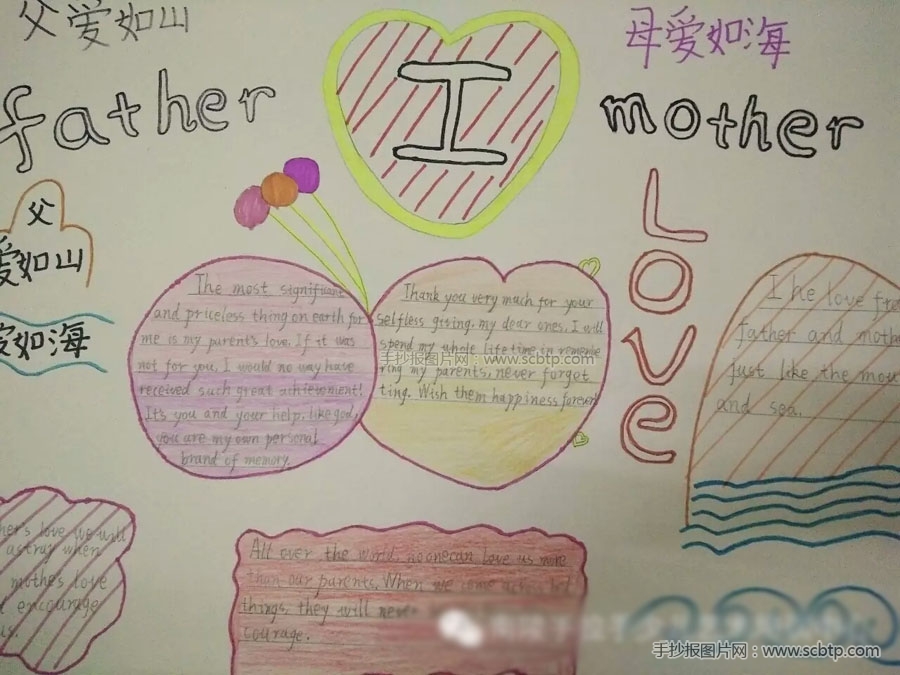 父爱如山
母爱如海
father
I
mother
Love
父
爱如山
爱如海
The most significant
and priceless thing on earth for
me is my parents love. If it was
not for you, I would no way have
received such great achievement!
It's you and your help, like god,
you are my own personal
brand of memory.
Thank you very much for your
selfless giving, my dear ones. I will
spend my whole life time in remembe
ring my parents, never forget
ting. Wish them happiness forever
手抄报图片网：www.scbtp.com
I he love fro
father and moth
just like the mou
and sea.
her's love we will
astray when
mothes love
encourage
us.
All over the world, no onecan love us more
than our parents. When we come across bad
things, they will never
courage.
手抄报图片网：www.scbtp.com